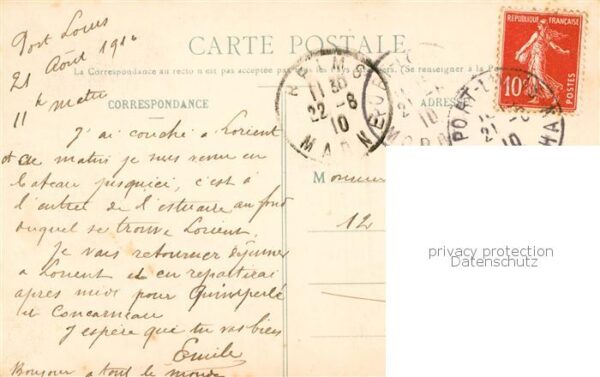 Port Louis
21 Août 1910
11h matin
CARTE POSTALE
La Correspondance au recto n'est pas acceptée par (Se renseigner à la Po
CORRESPONDANCE
ADRES
REPUBLIQUE FRANÇAISE
10c
REIMS
11 30
22 -8
10
MARNE
PORT-L
21 -8
10
J'ai couché à Lorient
et ce matin je suis venu en
bateau jusqu'ici, c'est à
l'entrée de l'estuaire au fond
duquel se trouve Lorient.
Je vais retourner déjeuner
à Lorient et en repartirai
après midi pour Quimperlé
et Concarneau
J'espère que tu vas bien
Emile
Bonjour à tout le monde
Monsieur
12
privacy protection
Datenschutz